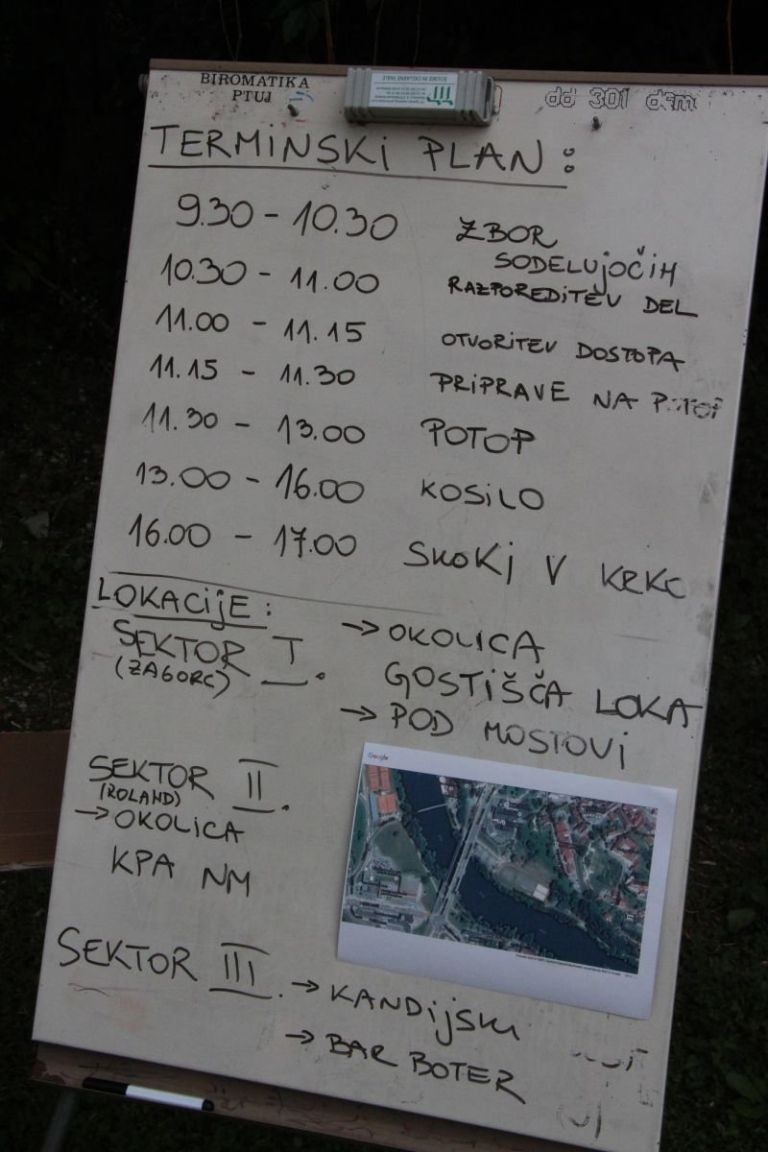 BIROMATIKA
PTUJ
TERMINSKI PLAN:
9.30 - 10.30 ZBOR SODELUJOČIH
10.30 - 11.00 RAZPOREDITEV DEL
11.00 - 11.15 OTVORITEV DOSTOPA
11.15 - 11.30 PRIPRAVE NA POTOP
11.30 - 13.00 POTOP
13.00 - 16.00 KOSILO
16.00 - 17.00 SKOKI V KRKO
LOKACIJE:
SEKTOR I.
(ZAGORC)
→ OKOLICA
GOSTIŠČA LOKA
→ POD MOSTOVI
SEKTOR II.
(ROLAND)
→ OKOLICA
KPA NM
Google
SEKTOR III. → KANDIJSKI
→ BAR BOTER